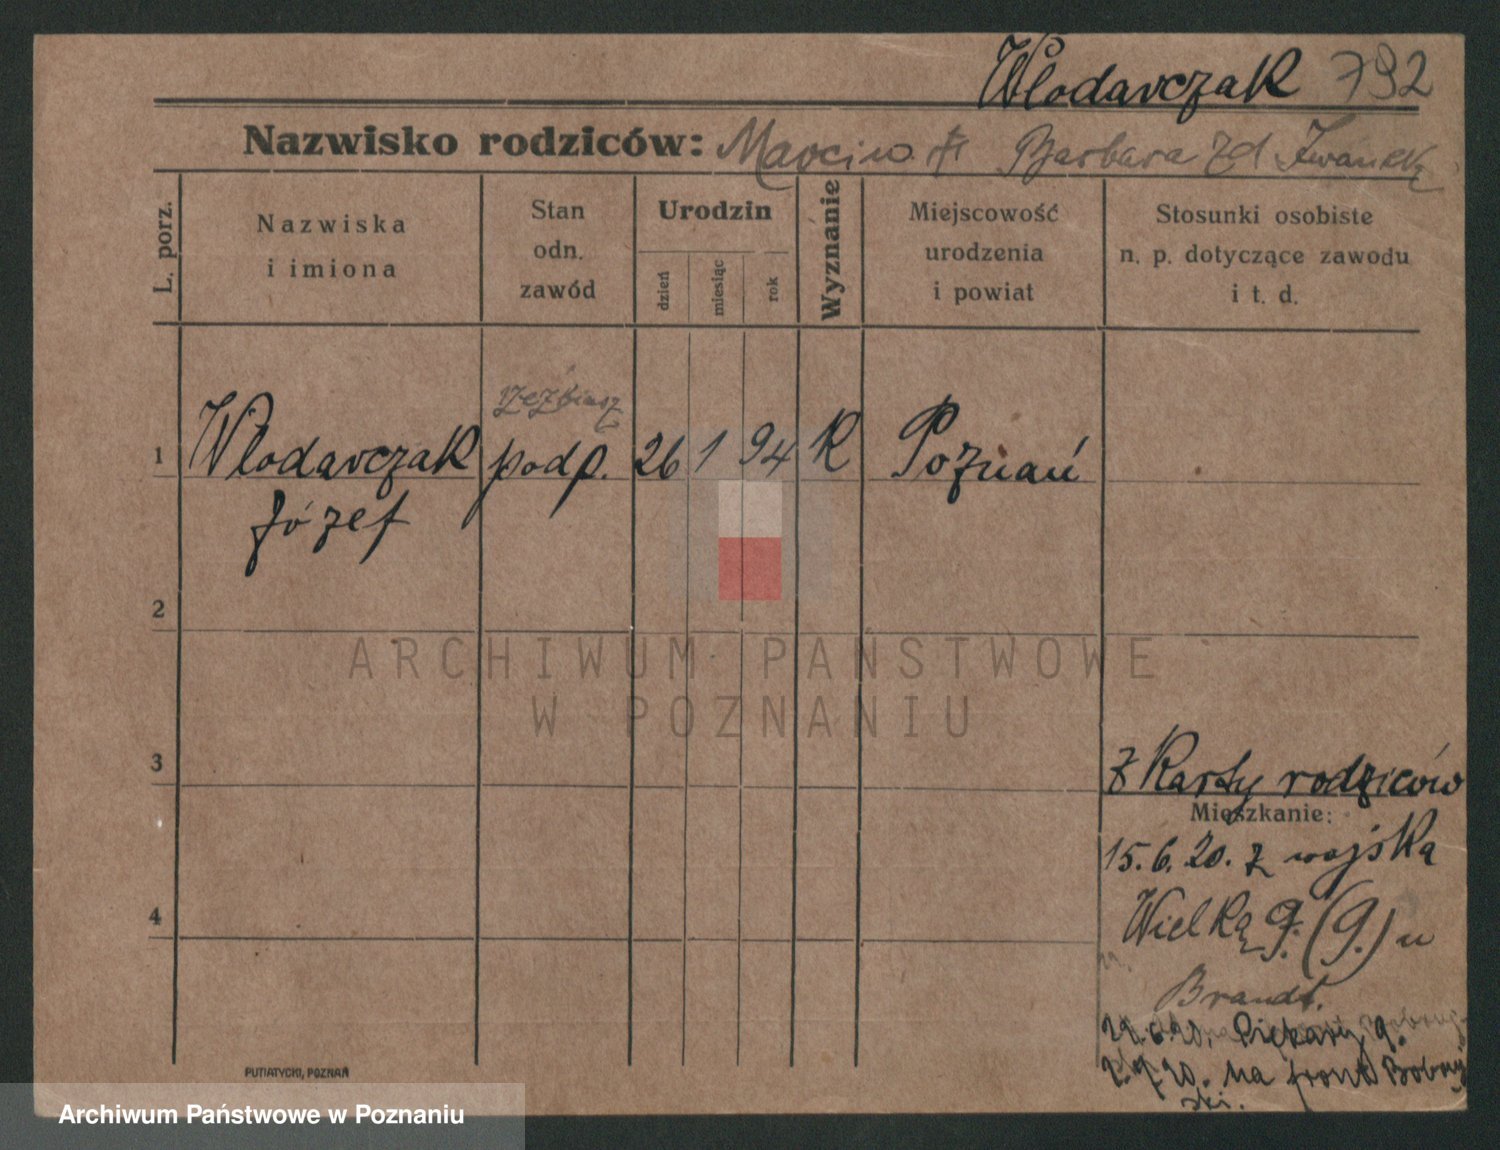 Włodarczak 792
Nazwisko rodziców: Marcin Barbara zd
L. porz.
Nazwiska
i imiona
Stan
odn.
zawód
Urodzin
dzień
miesiąc
rok
Wyznanie
Miejscowość
urodzenia
i powiat
Stosunki osobiste
n. p. dotyczące zawodu
i t. d.
rzeźbiarz
1 Włodarczak podp. 26 1 94 K Poznań
Józef
2
ARCHIWUM PAŃSTWOWE
W POZNANIU
3
z Karty rodziców
Mieszkanie:
15.6.20. z wojska
4
Wielką 9. (9.) u
Brandt.
22.6.20. Piekary 9.
2.7.20. na front Bobruj
ski.
PUTIATYCKI, POZNAŃ
Archiwum Państwowe w Poznaniu